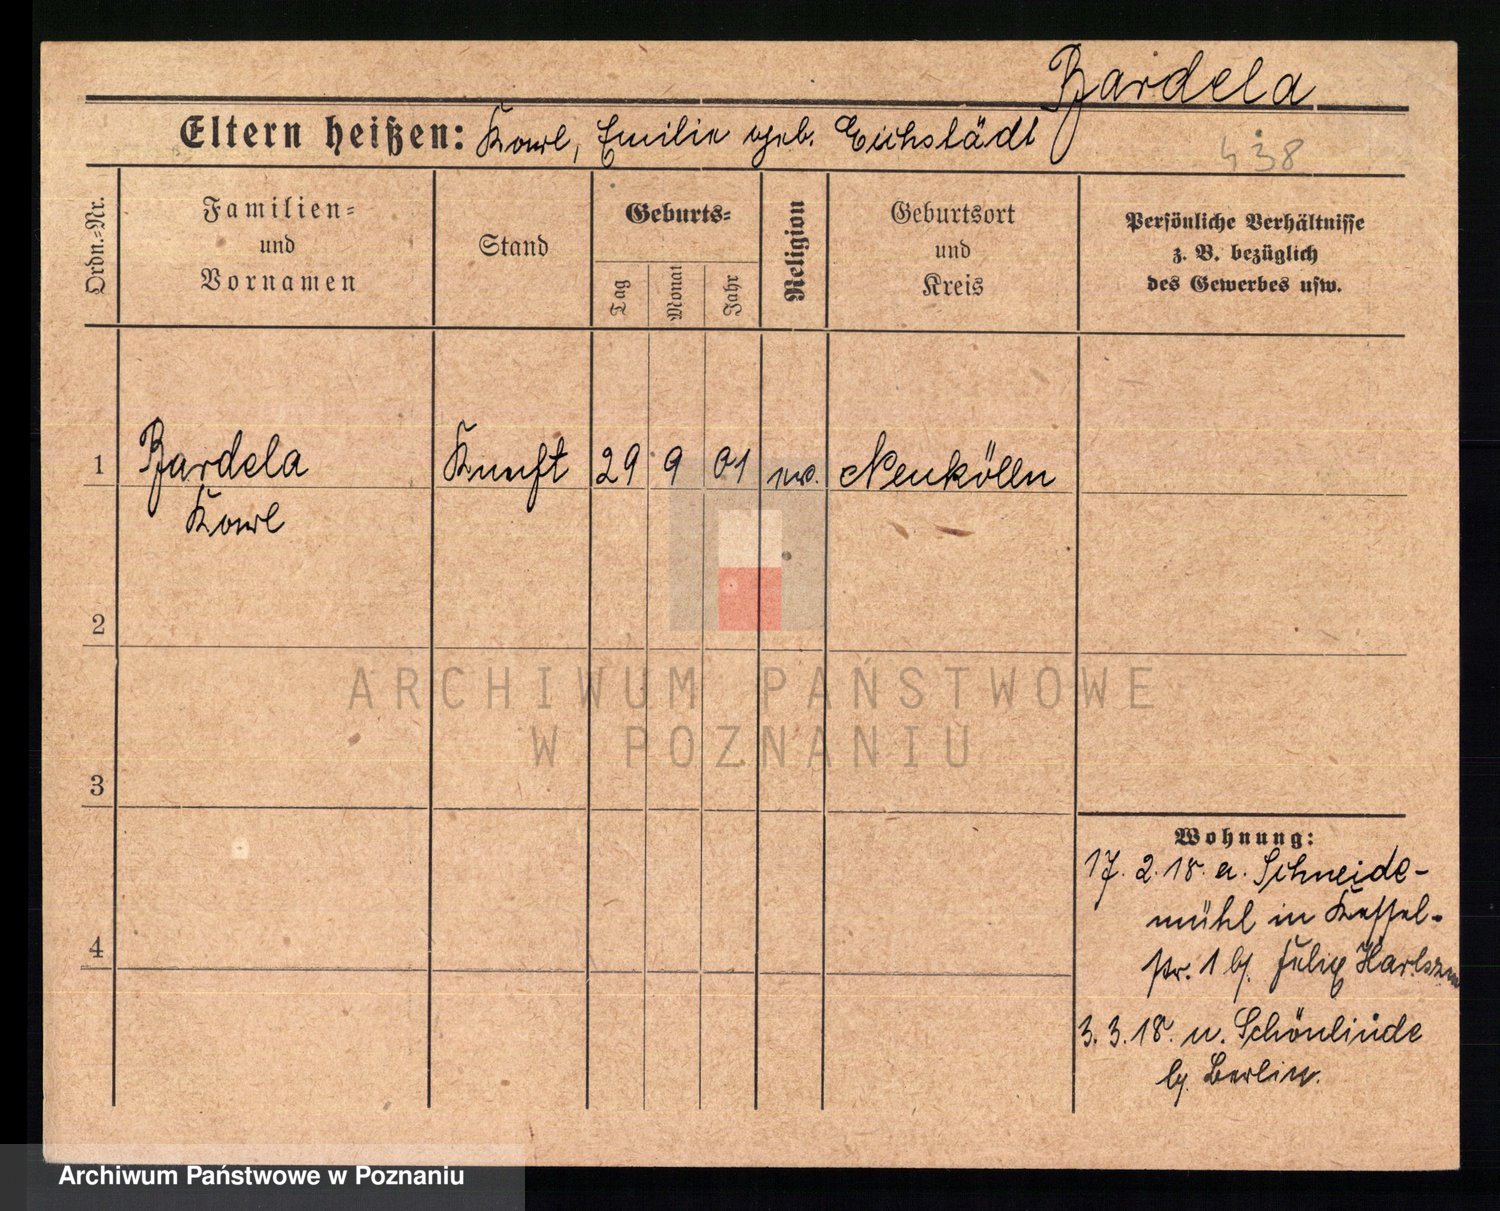 Bardela
Eltern heißen: Karl, Emilie geb. Eichstädt
438
Ordn.=Nr.
Familien=
und
Vornamen
Stand
Geburts=
Tag
Monat
Jahr
Religion
Geburtsort
und
Kreis
Persönliche Verhältnisse
z. B. bezüglich
des Gewerbes usw.
1 Bardela 29 9 01 ev. Neukölln
Karl
2
ARCHIWUM PAŃSTWOWE
W POZNANIU
3
Wohnung:
17. 2. 18. a. Schneide-
mühl in Kessel-
4
str. 1 bj.
3. 3. 18. n. Schönlinde
bj. Berlin.
Archiwum Państwowe w Poznaniu